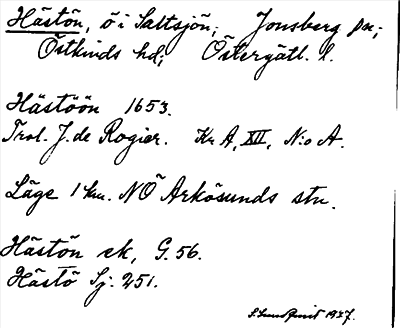 Hästön, ö i Saltsjön; Jonsberg sn;
Östkinds hd; Östergötl. l.
Hästöön 1653.
Trol. J. de Rogier. Kr A, XII, N:o A.
Läge 1 km. NÖ Arkösunds stn.
Hästön ek, G. 56.
Hästö Sj. 251.
S. Lundquist 1937.